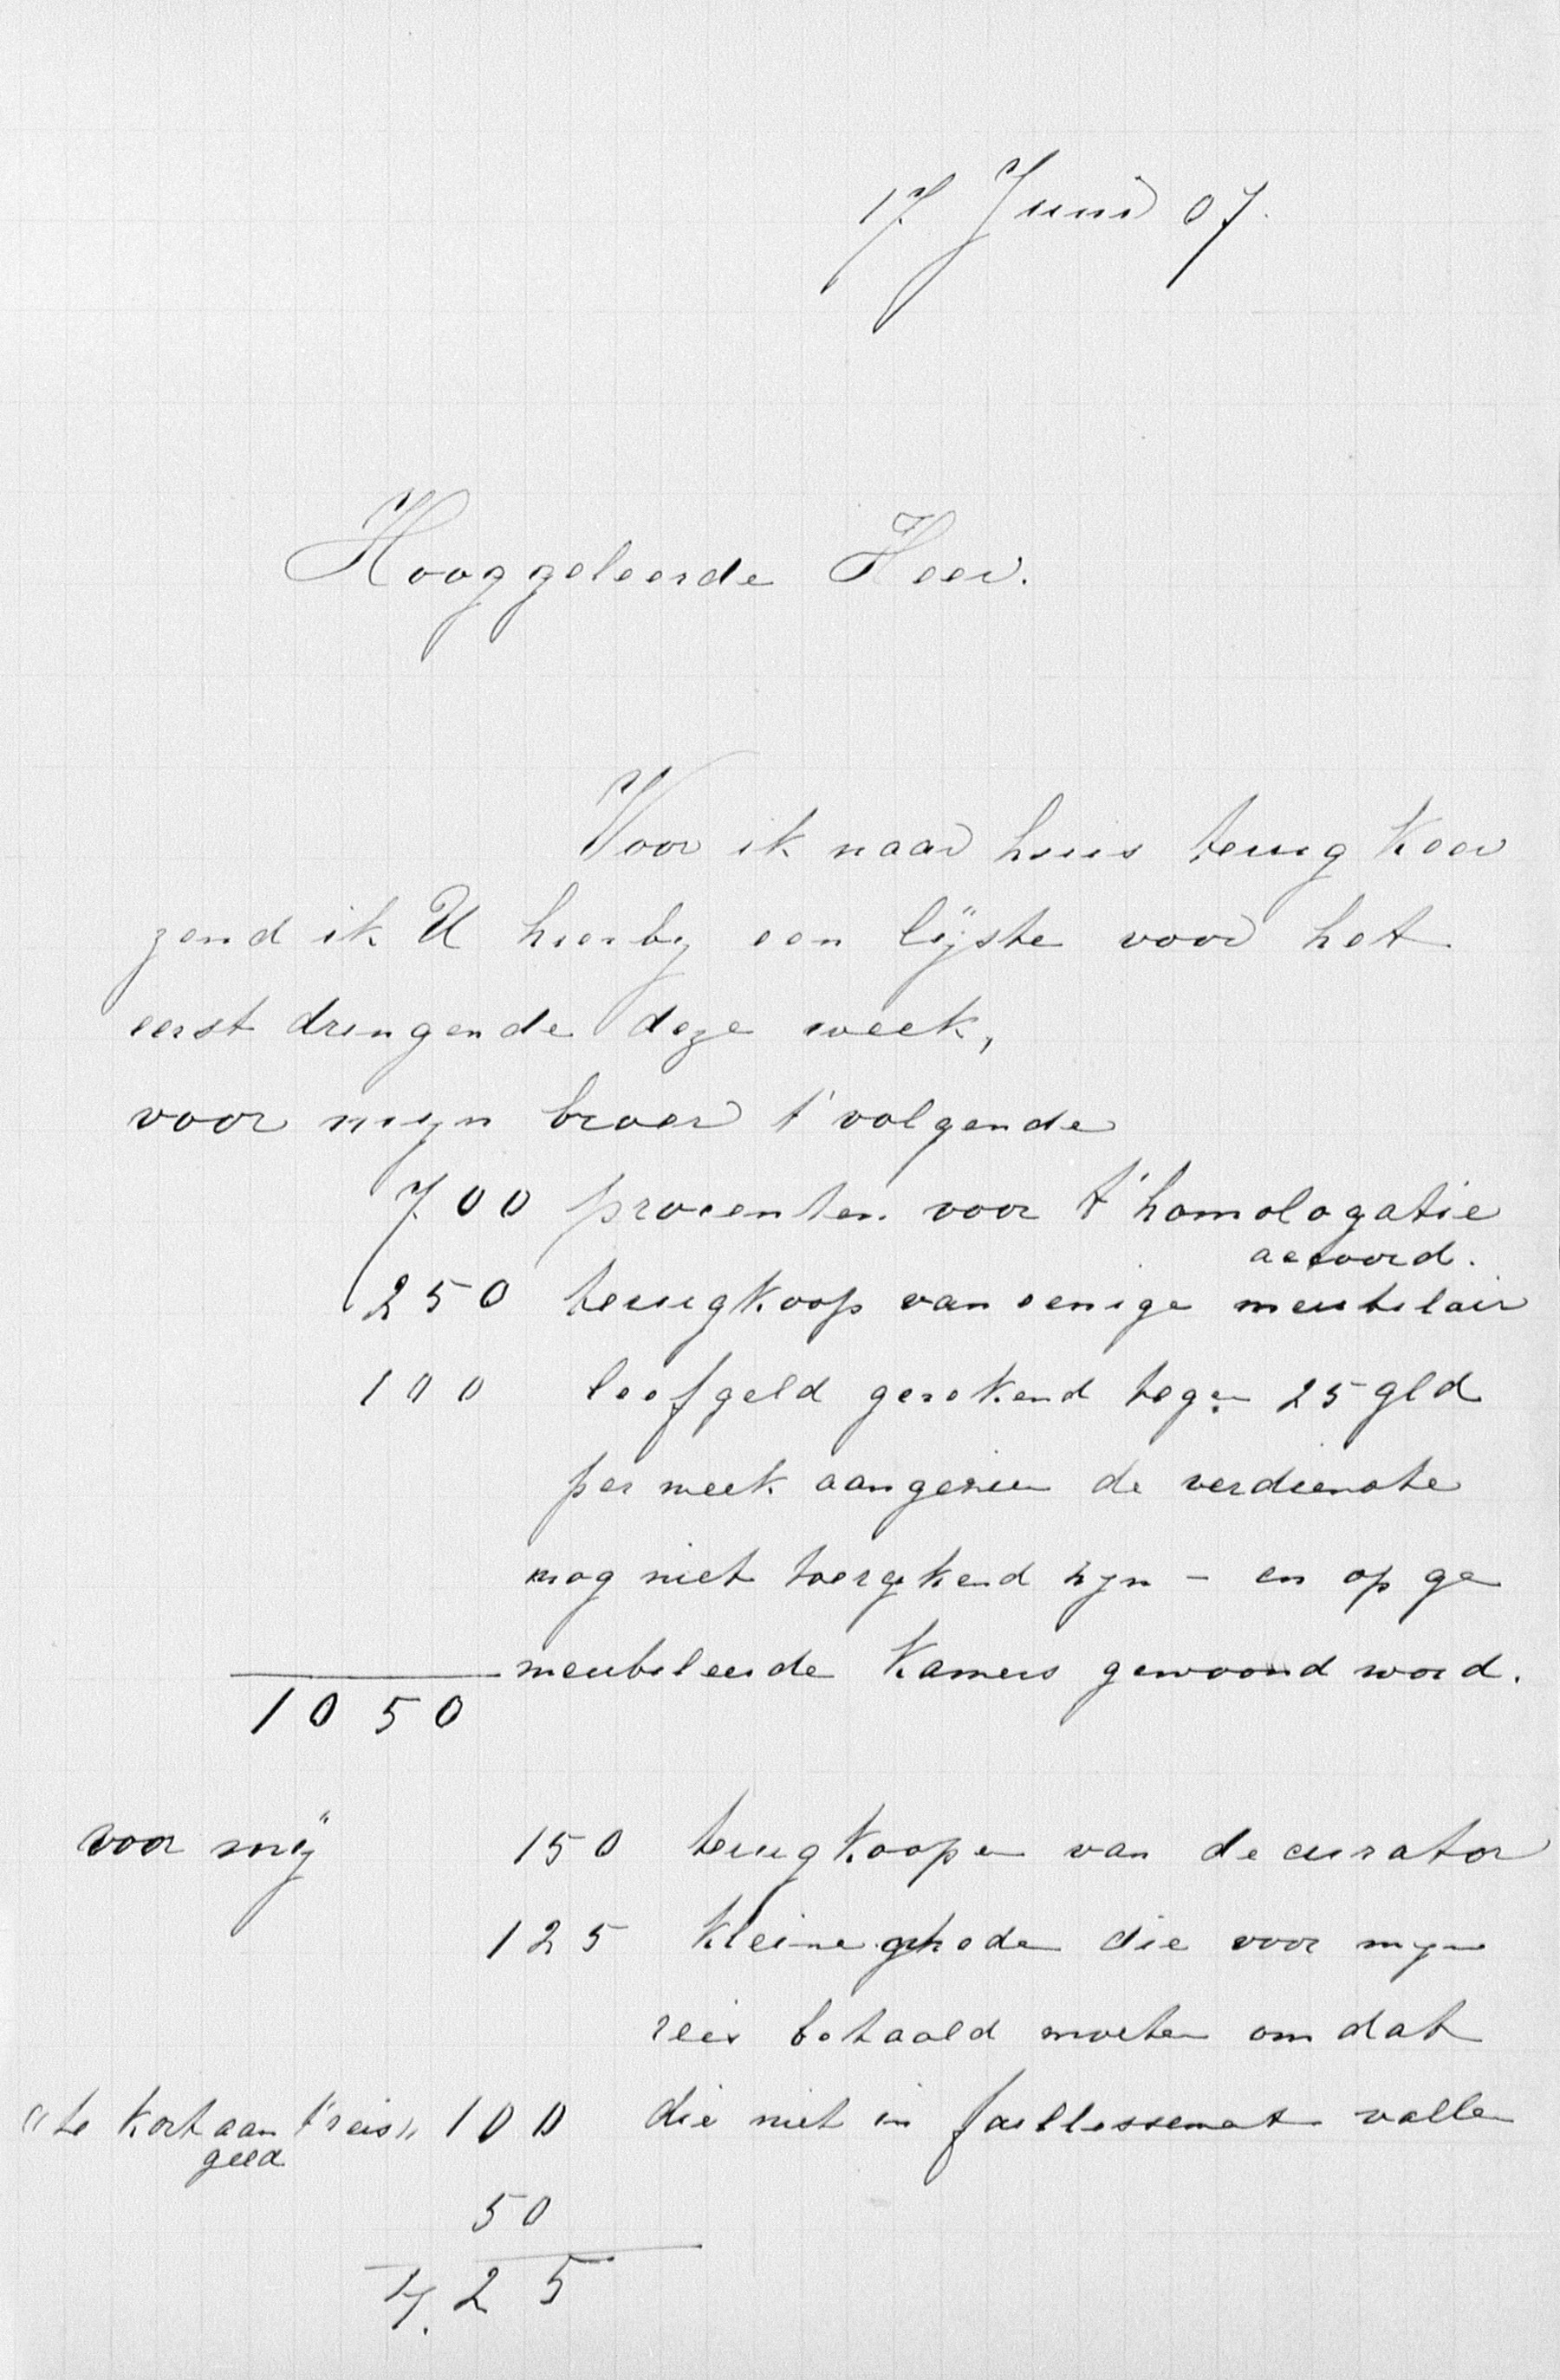 17 Juni 07.
Hooggeleerde Heer.
Voor ik naar huis terug keer
zend ik U hierby een lijste voor het
eerst dringende deze week,
voor mijn broer t' volgende
700 procenten voor t' homologatie
accoord.
250 terugkoop van eenige meubilair
100 leefgeld gerekend tegen 25 gld
per week aangezien de verdienste
nog niet toerykend zyn - en op ge
meubeleerde Kamers gewoond word.
1050
voor mij 150 terug koopen van de curator
125 Kleinegheden die voor myn
reis betaald moeten om dat
"te kort aan t'reis" 100 die niet in faillessement vallen
geld
50
425